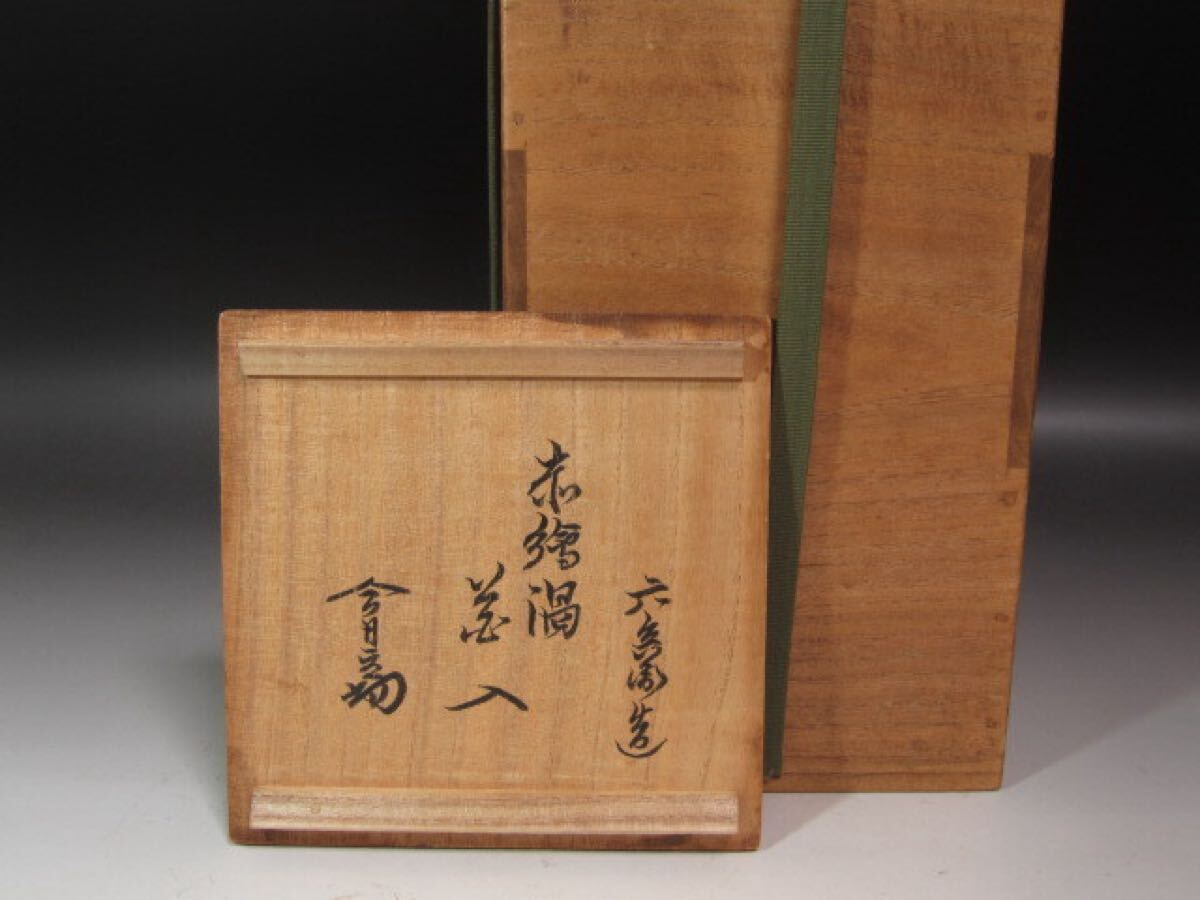 六兵衛造
赤繪渦
花入
今日